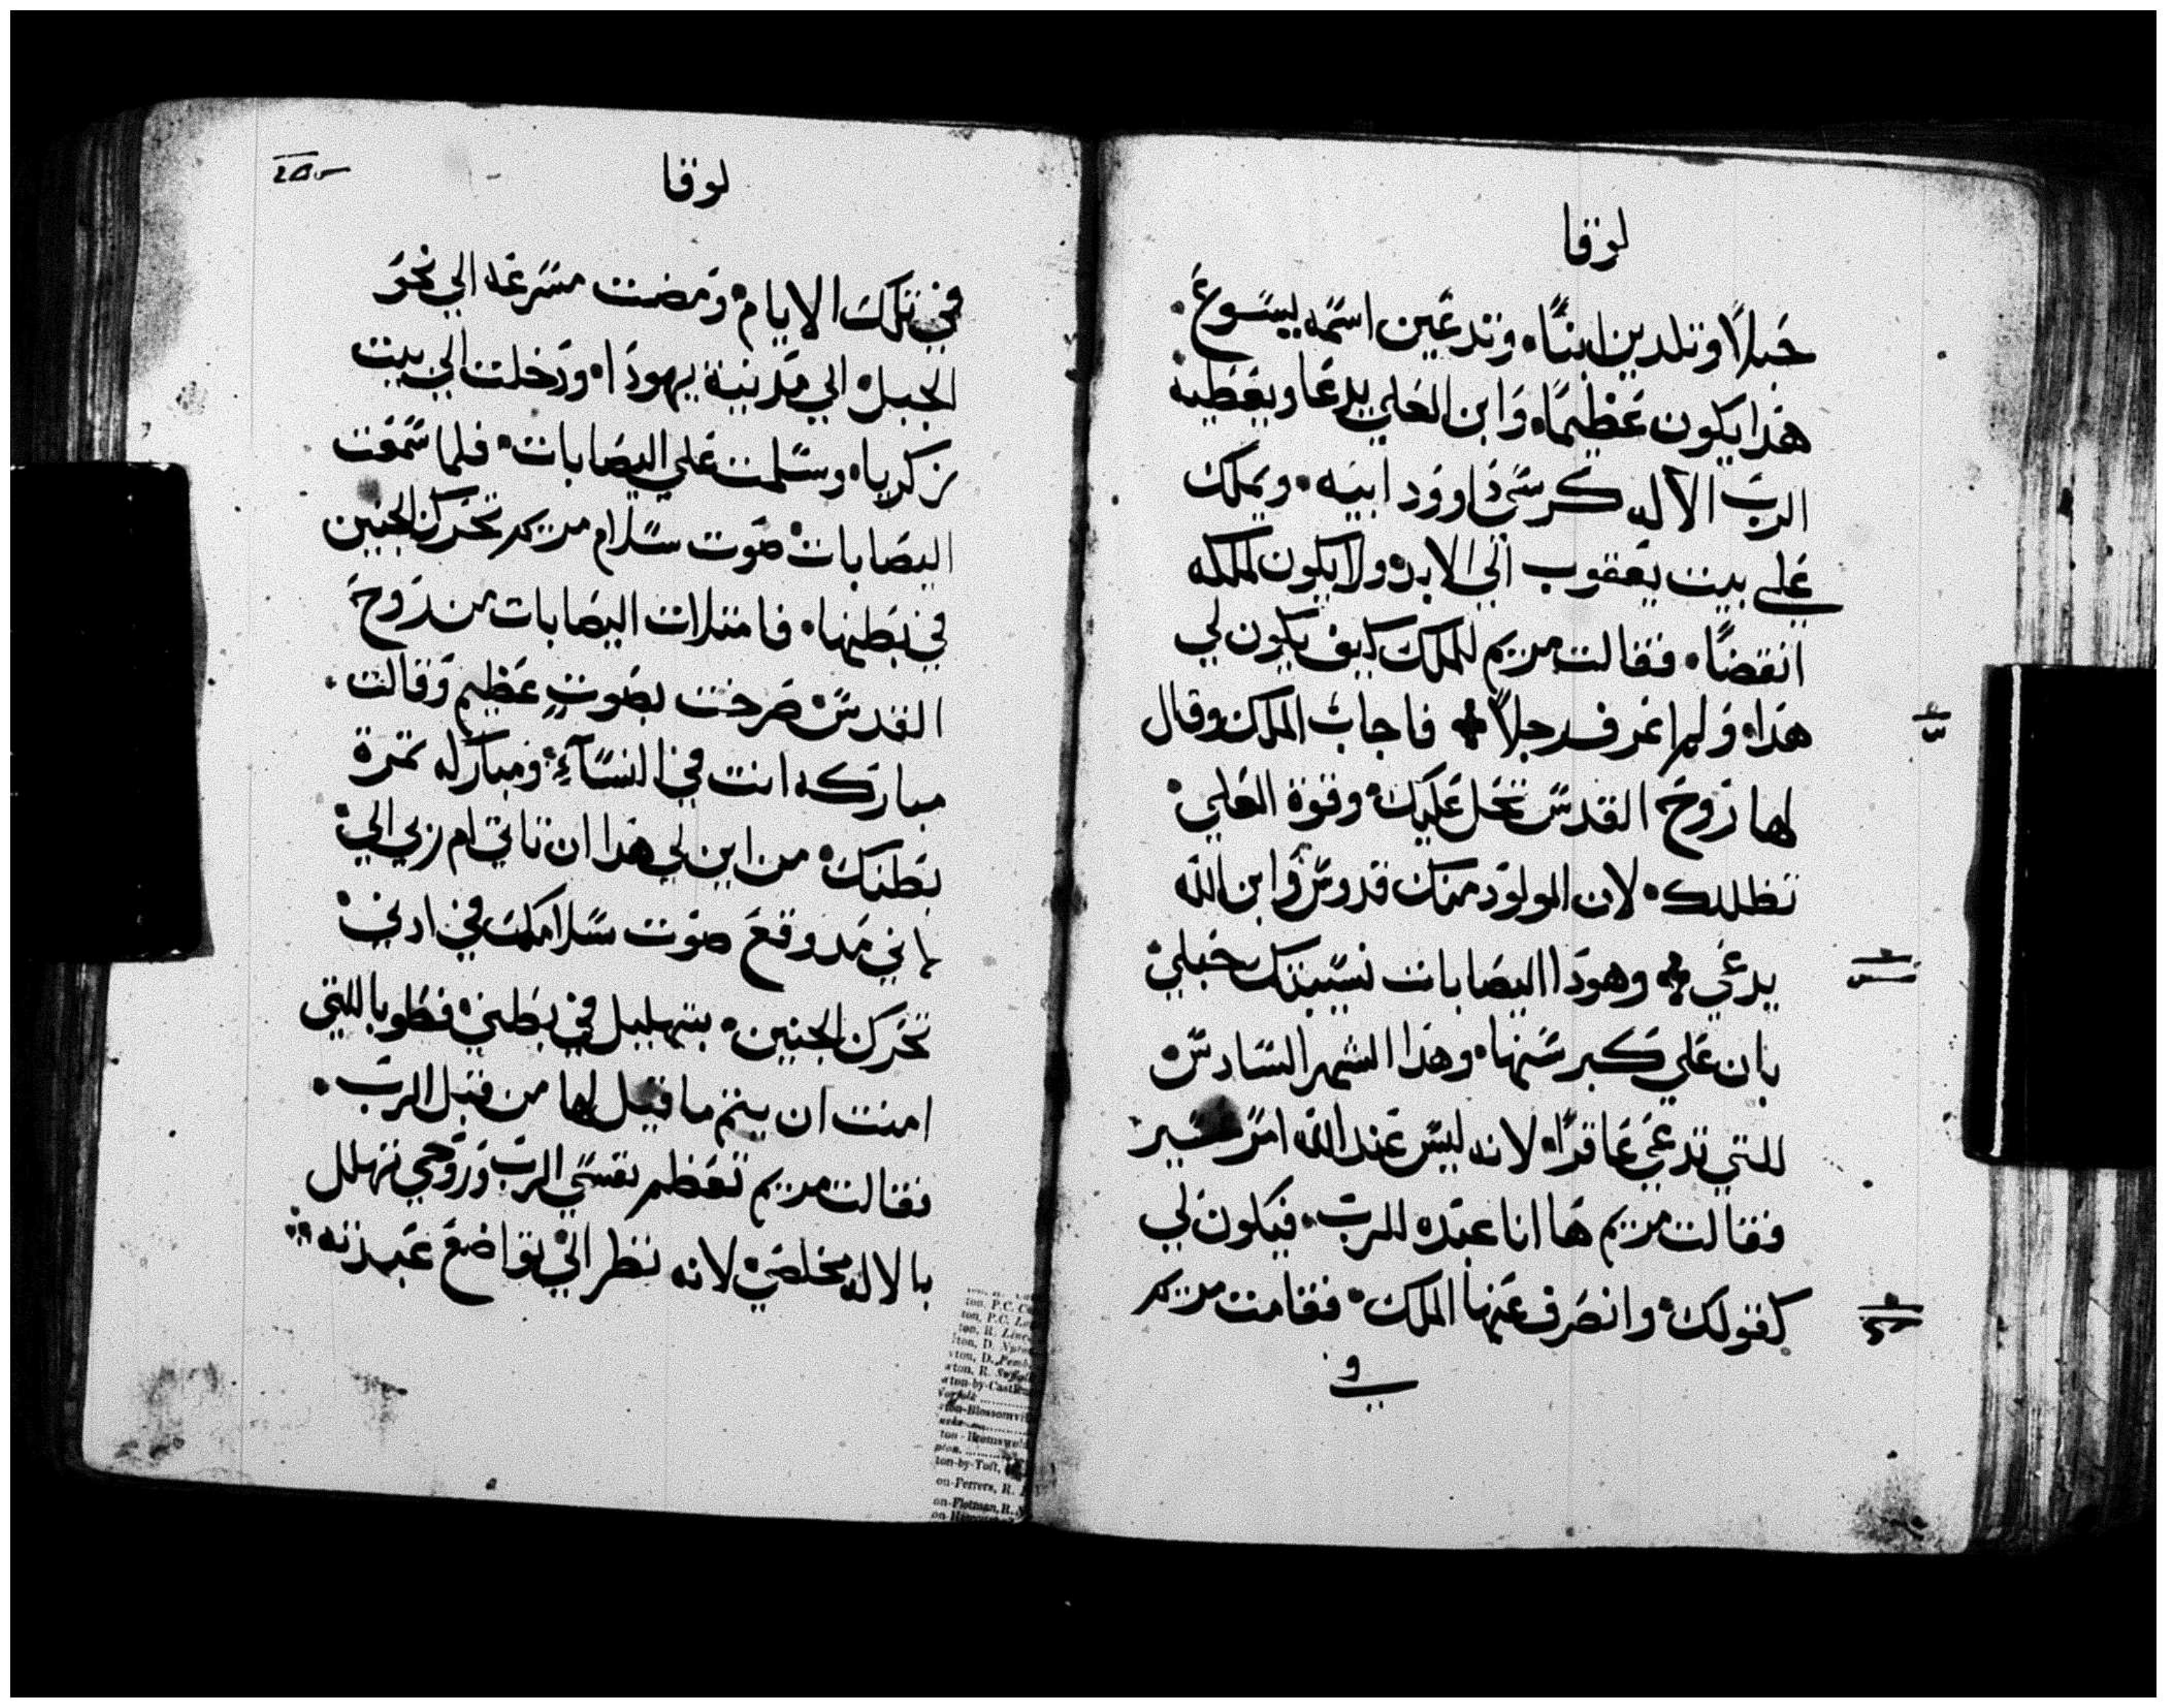 لوقا
حَبلاً وتلدين ابنًا. وتدعين اسمه يسوع.
هذا يكون عظيمًا. وابن العلي يدعا ويعطيه
الربّ الاله كرسي داوود ابيه. ويملك
علي بيت يعقوب الي الابد. ولا يكون لملكه
انقضاً. فقالت مريم للملك كيف يكون لي
هذا. ولم اعرف رجلاً فاجاب الملك وقال
لها روح القدس تحل عليك. وقوة العلي.
تظللك. لان المولود منك قدوس وابن الله
يدعي وهودا اليصابات نسيبتك حبلي.
بان علي كبر سنها. وهذا الشهر السادس
للتي تدعي عاقرًا. لانه ليس عند الله امر عسير
فقالت مريم ها انا عبده للرب. فيكون لي
كقولك. وانصرف عنها الملك. فقامت مريم
لوقا
في تلك الايام. ومضت مسرعه الي نحو
الجبل. الي مدينة يهودا. ودخلت الي بيت
زكريا. وسلمت علي اليصابات. فلما سمعت
اليصابات. صوت سلام مريم تحرك الجنين
في بطنها. فامتلات اليصابات من روح
القدس. صرخت بصوتٍ عظيم وقالت.
مباركه انت في النسآءِ. ومباركه ثمرة
بطنك. من اين لي هذا ان تاتي ام ربي الي.
لاني مد وقع صوت سلامك في ادني.
تحرك الجنين. بتهليل في بطني. فطوبا للتي
امنت ان يتم ما قيل لها من قبل الربّ.
فقالت مريم تعظم نفسي الربّ وروحي تهلل
بالاله مخلصي. لانه نظر الي تواضع عبدته